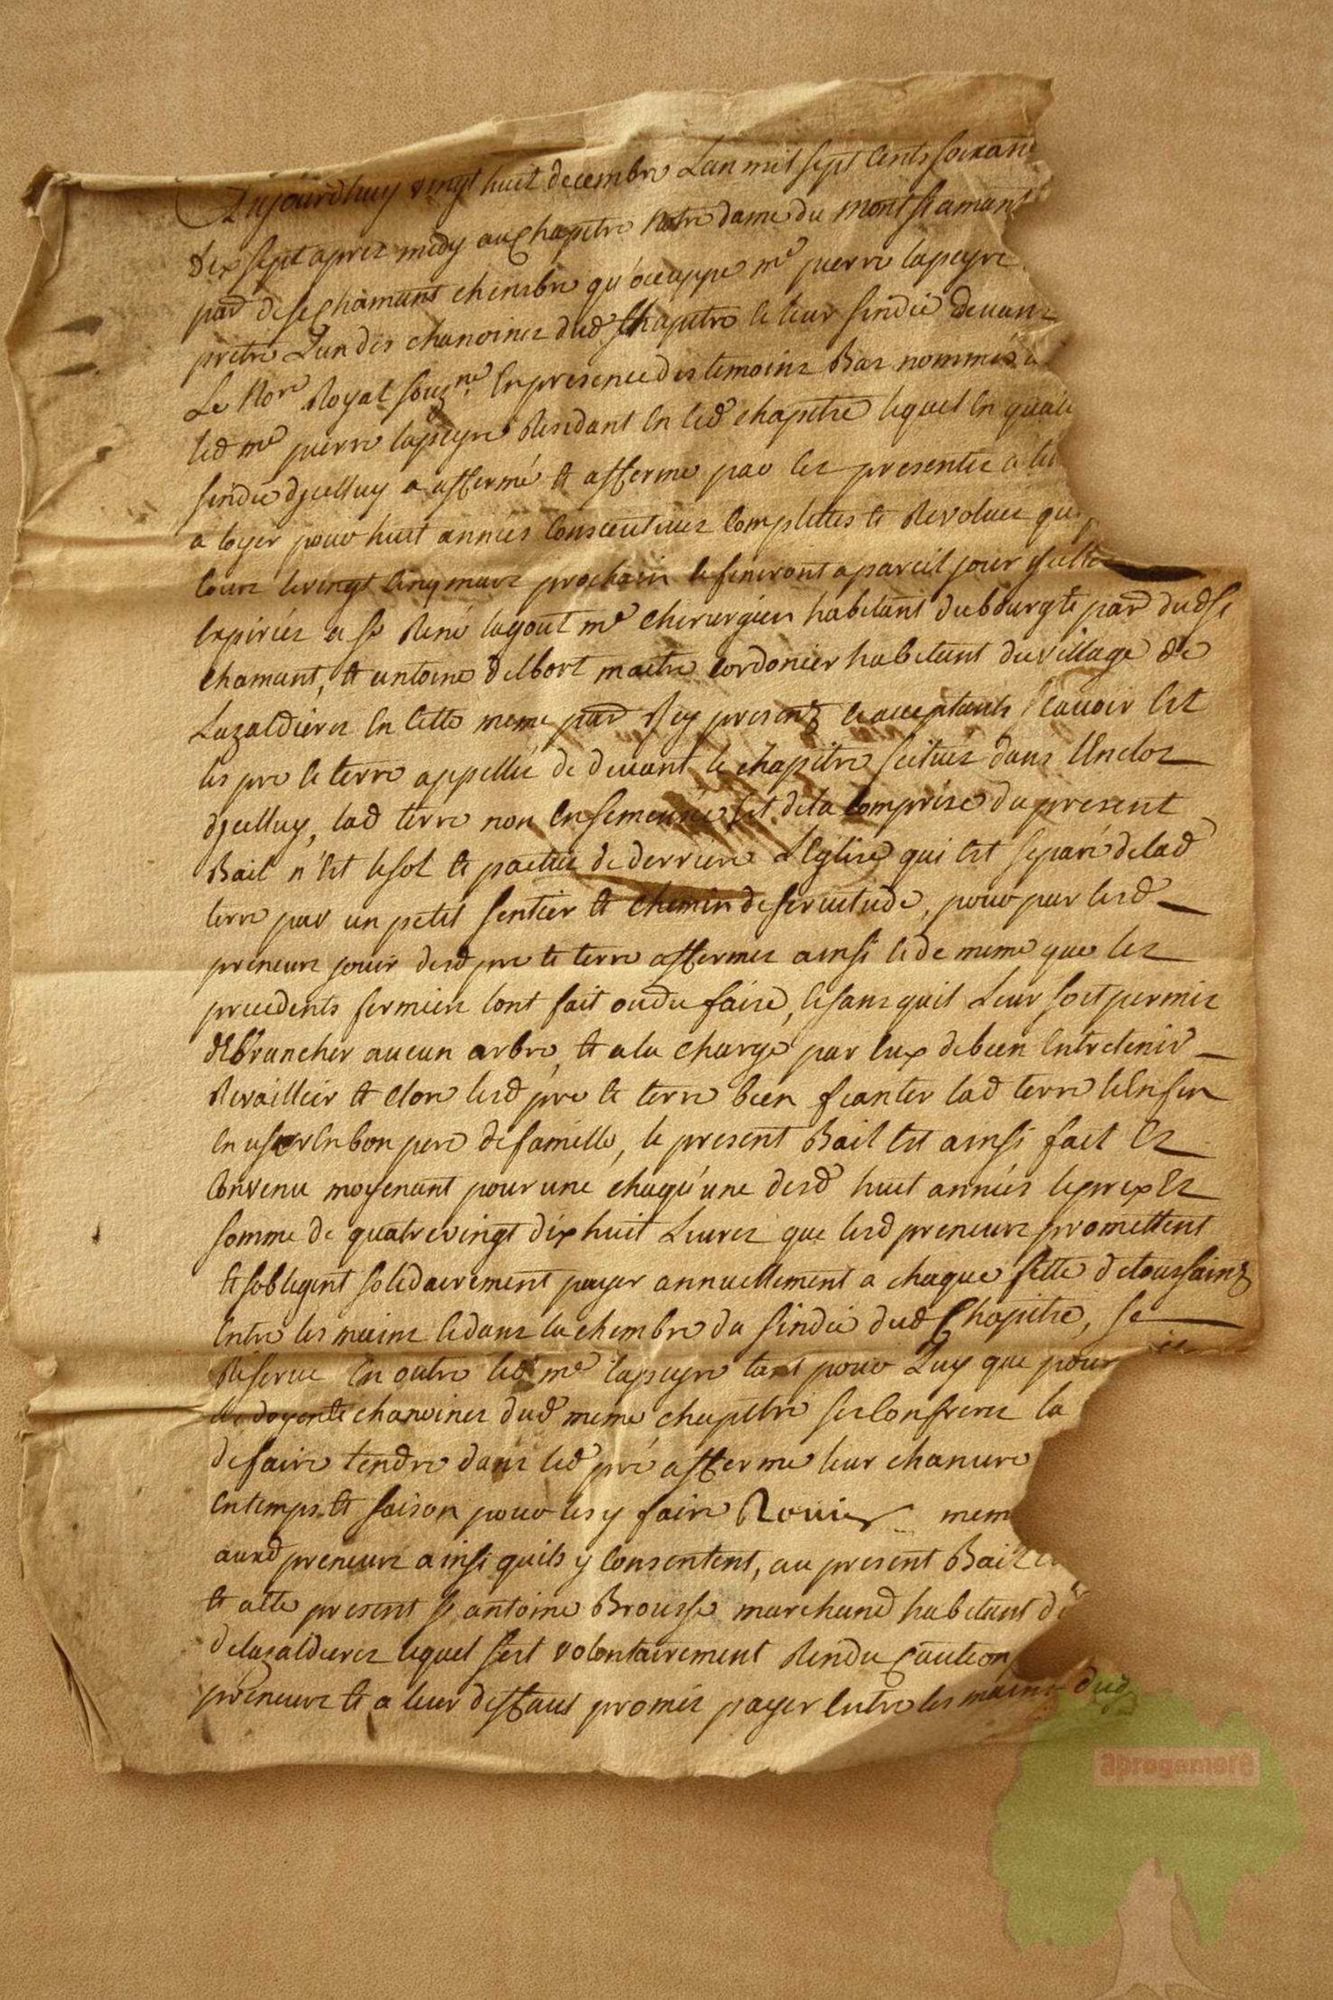 Aujourdhuy vingt huit decembre Lan mil sept Cents soixan
dix sept apres midy au Chapitre Notre dame du Mont St amant
par de St Chamant chembre qu'occuppe me pierre lapeyre
prêtre Lun des chanoines dud Chapitre le leur sindic devant
Le Nore Royal souzne En presence des temoins Bas nommés
led me pierre lapeyre Residant En led chapitre lequel En quali
sindic dicelluy a affermé et afferme par les presentes a ti
a loyer pour huit années Consecutives Completes et Revolues qu
Cours le vingt Cinq mars prochain et finiront a pareil jour y
Expiriés a sr René lagout me chirurgien habitant du bourg et par dud St
Chamant, et antoine delbort maitre cordonier habitant du village de
Lazaldieres En cette meme par Icy presents et acceptants Scavoir Est
les pre et terre appellés de devant le chapitre scitués dans lEnclos
dicelluy, lad terre non Ensemencée Et de la Comprise du present
Bail n'Est le sol et de derriere LEglise qui Est separé de lad
terre par un petit sentier et chemin de servitude, pour par lesd
preneurs jouir desd pre et terre affermés ainsi et de meme que les
precedents fermiers lont fait ou du faire, et sans quil Leur soit permis
dEbrancher aucun arbre, et a la charge par Eux de bien Entretenir
et clore lesd pre et terre bien fianter lad terre et Enfin
En user En bon pere de famille, le present Bail Est ainsi fait Et
Convenu moyenant pour une chaqu'une desd huit années le prix Et
somme de quatre vingt dix huit Livres que lesd preneurs promettent
et soblegent solidairement payer annuellement a chaque fette de toussaint
Entre les mains et dans la chembre du sindic dud Chapitre, se
Reserve En outre led me lapeyre tant pour Luy que pour
doyen et chanoines dud meme chapitre ses Confreres la
de faire tendre dans led pré affermé leur chanvre
En temps et saison pour les y faire Rouir mem
auxd preneurs ainsi quils y Consentent, au present Bail
Et atté present sr antoine Brousse marchand habitant d
de lazaldieres lequel sest volontairement Rendu Caution
preneurs et a leur deffaut promis payer Entre les mains dud
aprogemere